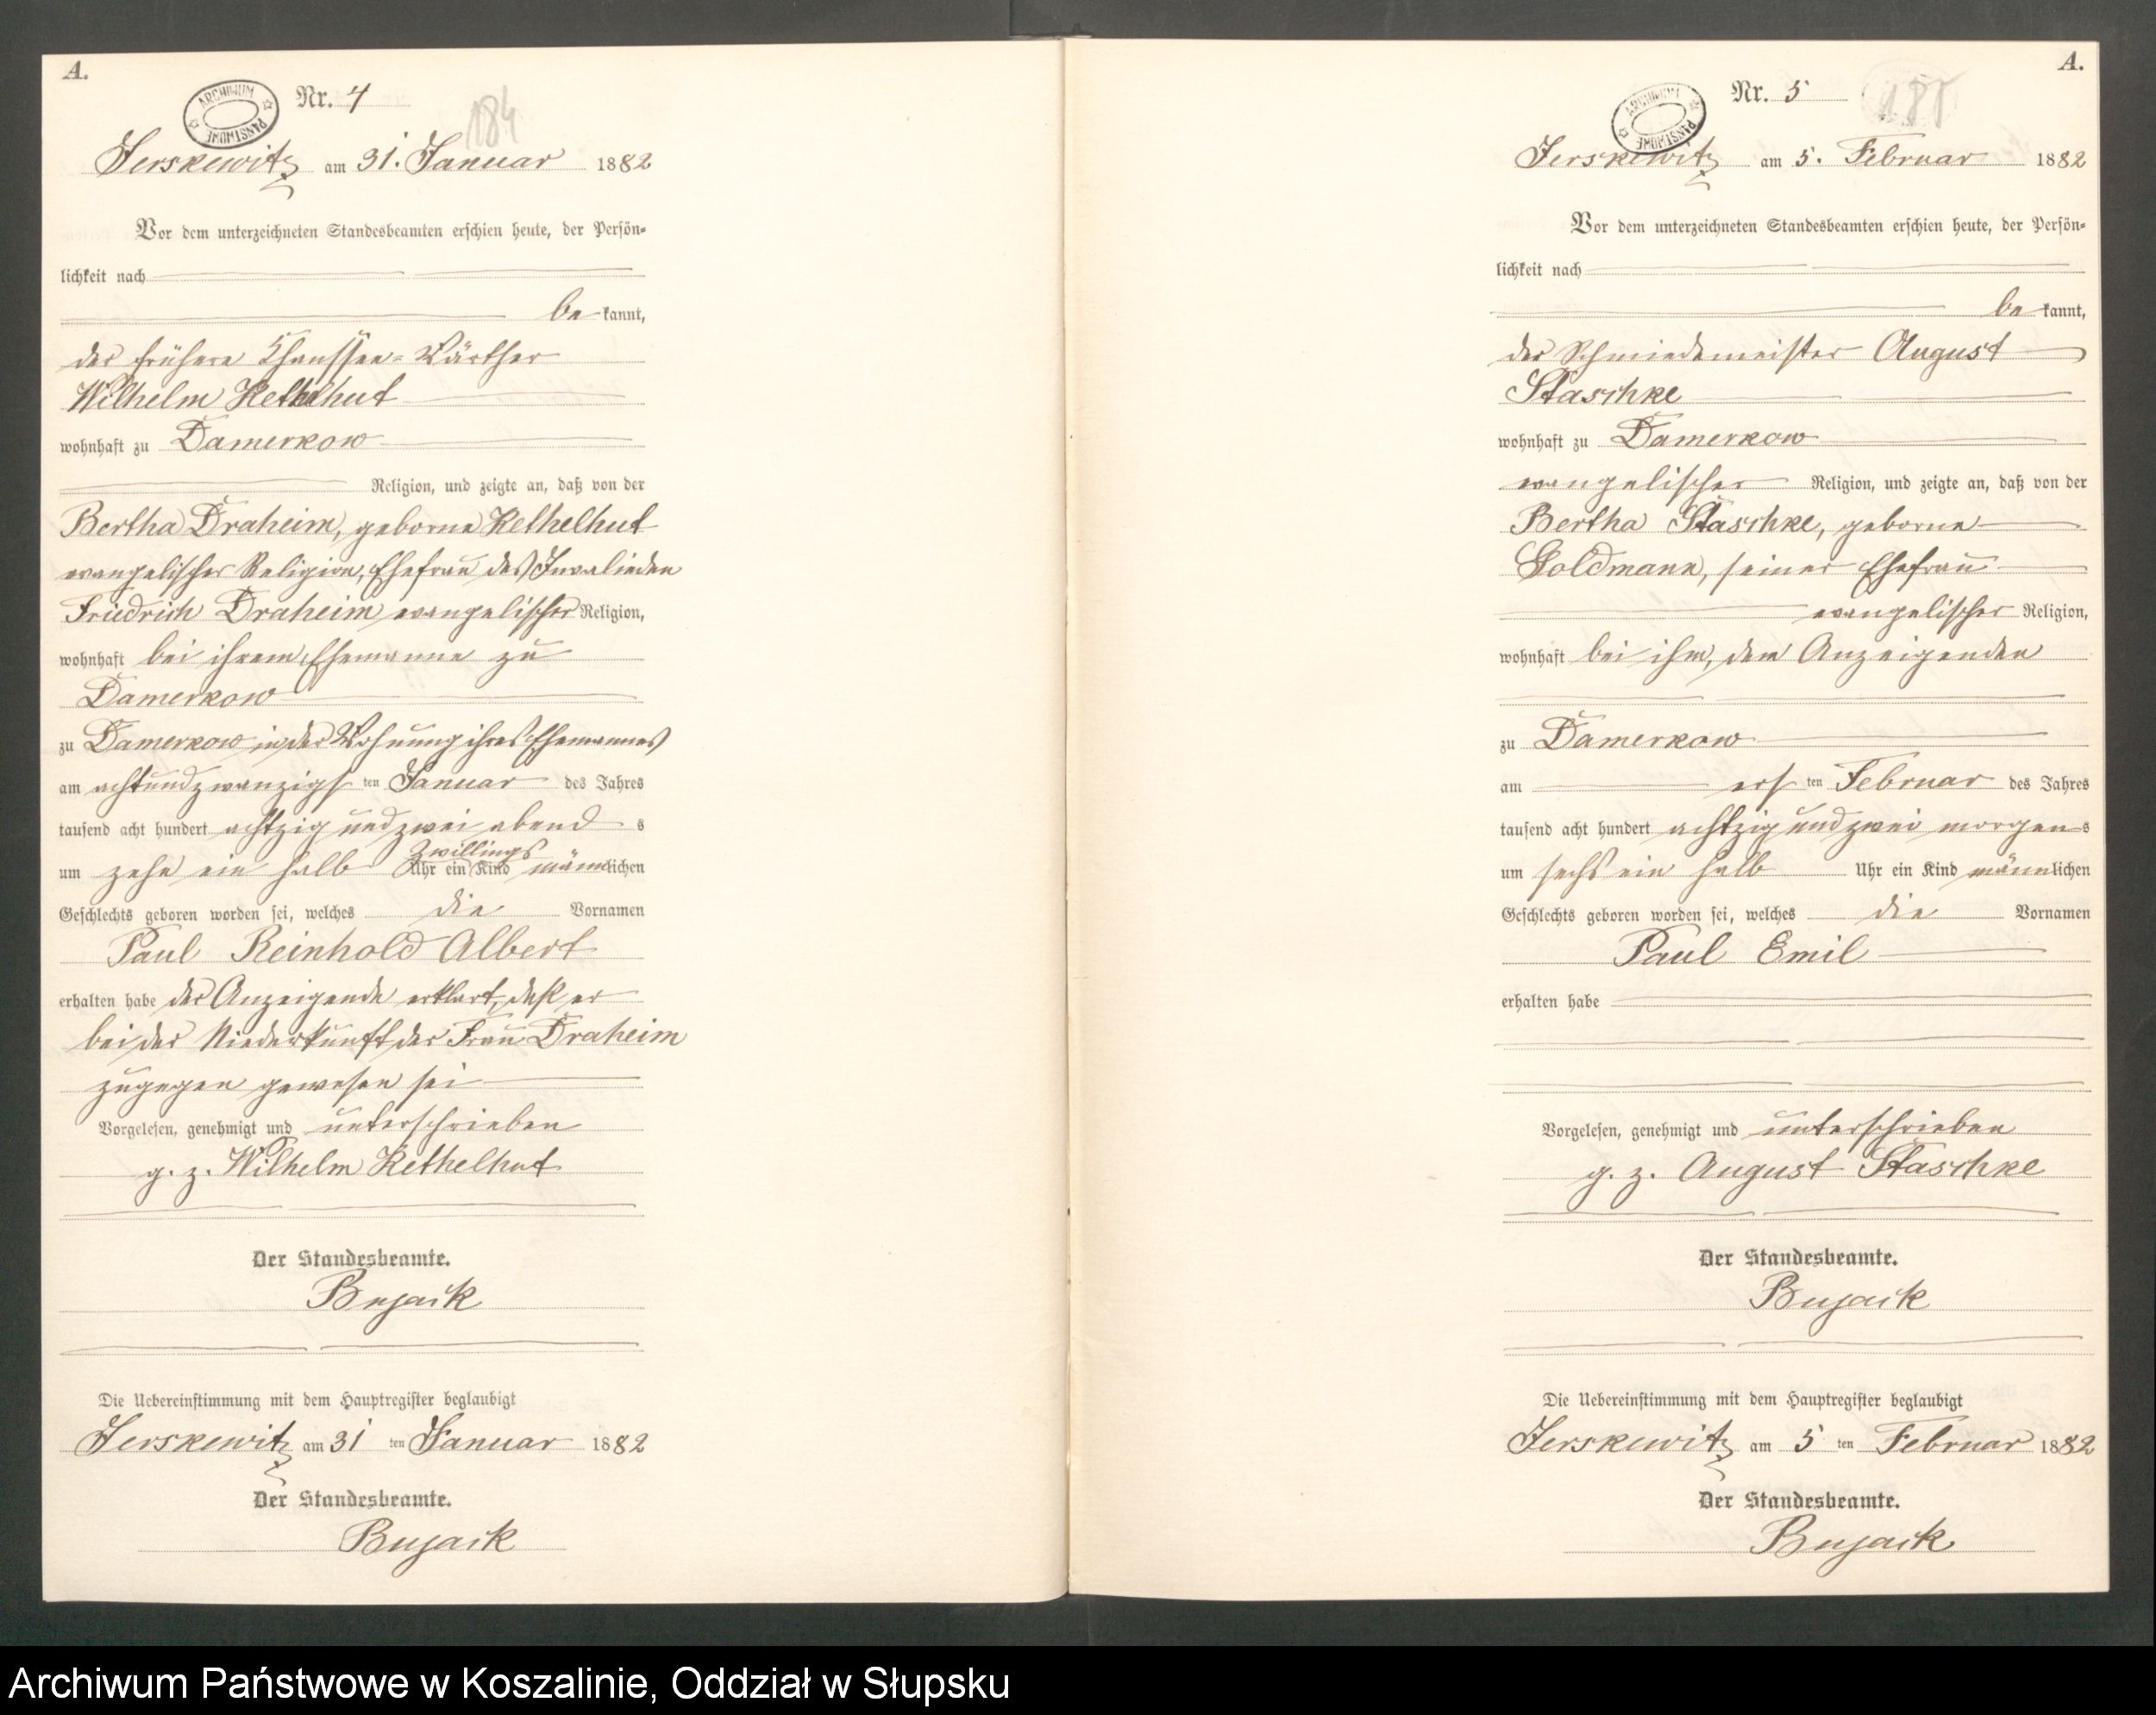 A.
ARCHIWUM PAŃSTWOWE
Nr. 4
184
Jerskewitz am 31. Januar 1882
Vor dem unterzeichneten Standesbeamten erschien heute, der Persön-
lichkeit nach
be kannt,
der frühere Chaussee-Wärther
Wilhelm Kethelhut
wohnhaft zu Damerkow
Religion, und zeigte an, daß von der
Bertha Draheim, geborne Kethelhut
evangelischer Religion, Ehefrau des Invalieden
Friedrich Draheim evangelischer Religion,
wohnhaft bei ihrem Ehemanne zu
Damerkow
zu Damerkow in der Wohnung ihres Ehemannes
am achtundzwanzigs ten Januar des Jahres
tausend acht hundert achtzig und zwei abend s
um zehn ein halb Uhr ein Zwillings Kind männlichen
Geschlechts geboren worden sei, welches die Vornamen
Paul Reinhold Albert
erhalten habe der Anzeigende erklart, daß er
bei der Niederkunft der Frau Draheim
zugegen gewesen sei
Vorgelesen, genehmigt und unterschrieben
g. z. Wilhelm Kethelhut
Der Standesbeamte.
Bujack
Die Uebereinstimmung mit dem Hauptregister beglaubigt
Jerskewitz am 31 ten Januar 1882
Der Standesbeamte.
Bujack
A.
ARCHIWUM PAŃSTWOWE
Nr. 5
185
Jerskewitz am 5. Februar 1882
Vor dem unterzeichneten Standesbeamten erschien heute, der Persön-
lichkeit nach
be kannt,
der Schmiedemeister August
Staschke
wohnhaft zu Damerkow
evangelischer Religion, und zeigte an, daß von der
Bertha Staschke, geborne
Goldmann, seiner Ehefrau
evangelischer Religion,
wohnhaft bei ihm, dem Anzeigenden
zu Damerkow
am ers ten Februar des Jahres
tausend acht hundert achtzig und zwei morgen s
um sechs ein halb Uhr ein Kind männlichen
Geschlechts geboren worden sei, welches die Vornamen
Paul Emil
erhalten habe
Vorgelesen, genehmigt und unterschrieben
g. z. August Staschke
Der Standesbeamte.
Bujack
Die Uebereinstimmung mit dem Hauptregister beglaubigt
Jerskewitz am 5 ten Februar 1882
Der Standesbeamte.
Bujack
Archiwum Państwowe w Koszalinie, Oddział w Słupsku